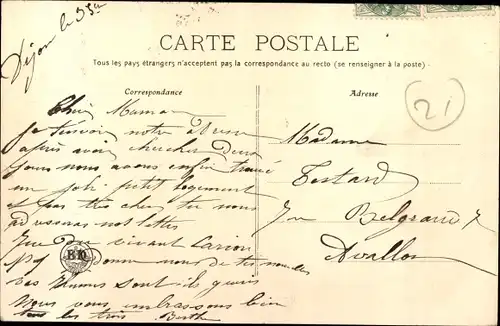 Dijon le 
CARTE POSTALE
Tous les pays étrangers n'acceptent pas la correspondance au recto (se renseigner à la poste)
Correspondance
Adresse
21
Chère Maman
notre adresse
après avoir chercher deux
jours nous avons enfin trouvé
un joli petit logement
et pas très cher tu nous
adresseras nos lettres
Rue du
nº4 Donne nous de tes nouvelles
ils guéris
Nous vous embrassons bien
tous les trois Berthe
BR
Madame
Testard
Rue Belgrand 7
Avallon